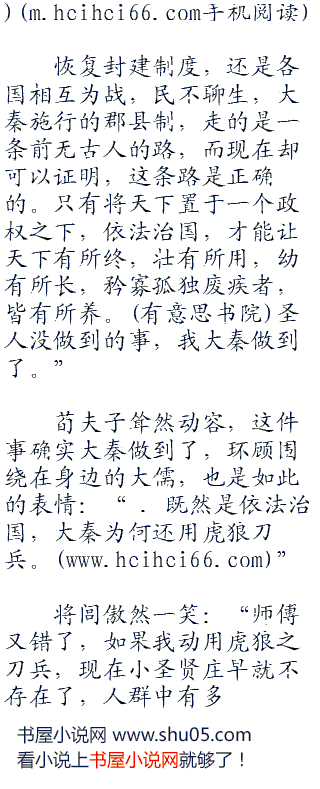 ) (m.hcihci66.com手机阅读)
恢复封建制度，还是各
国相互为战，民不聊生，大
秦施行的郡县制，走的是一
条前无古人的路，而现在却
可以证明，这条路是正确
的。只有将天下置于一个政
权之下，依法治国，才能让
天下有所终，壮有所用，幼
有所长，矜寡孤独废疾者，
皆有所养。(有意思书院)圣
人没做到的事，我大秦做到
了。”
荀夫子耸然动容，这件
事确实大秦做到了，环顾围
绕在身边的大儒，也是如此
的表情：“ . 既然是依法治
国，大秦为何还用虎狼刀
兵。(www.hcihci66.com)”
将闾傲然一笑：“师傅
又错了，如果我动用虎狼之
刀兵，现在小圣贤庄早就不
存在了，人群中有多
书屋小说网 www.shu05.com
看小说上书屋小说网就够了！